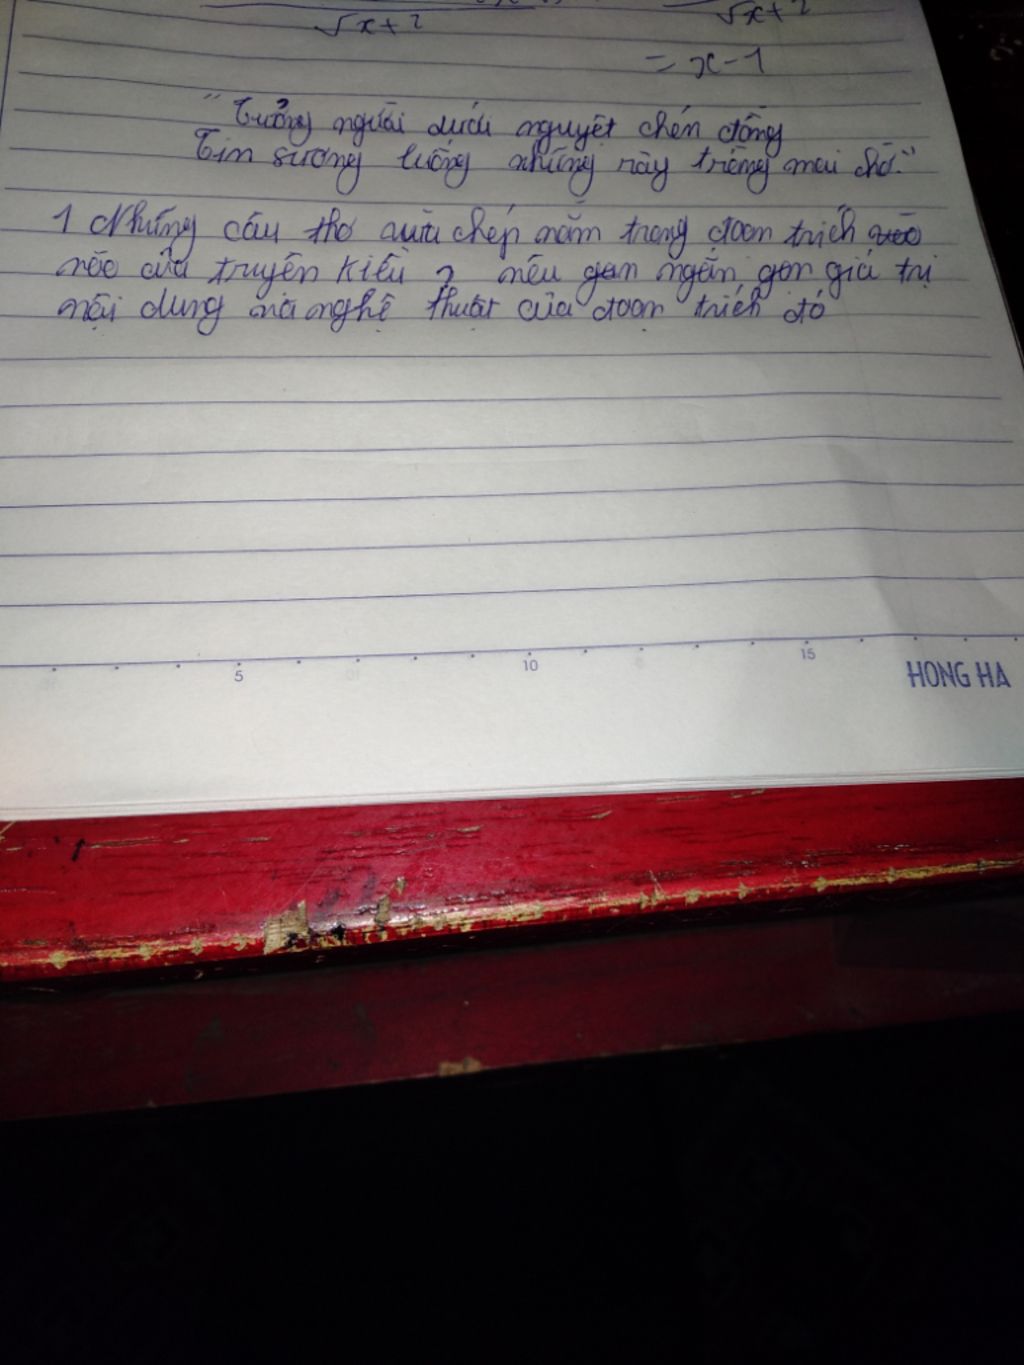 √x+2 √x+2
= x-1
"Tưởng người dưới nguyệt chén đồng
Tin sương luống những rày trông mai chờ."
1 Những câu thơ vừa chép nằm trong đoạn trích
nào của truyện Kiều ? nêu gọn ngắn gọn giá trị
nội dung và nghệ thuật của đoạn trích đó
5 10 15
HONG HA